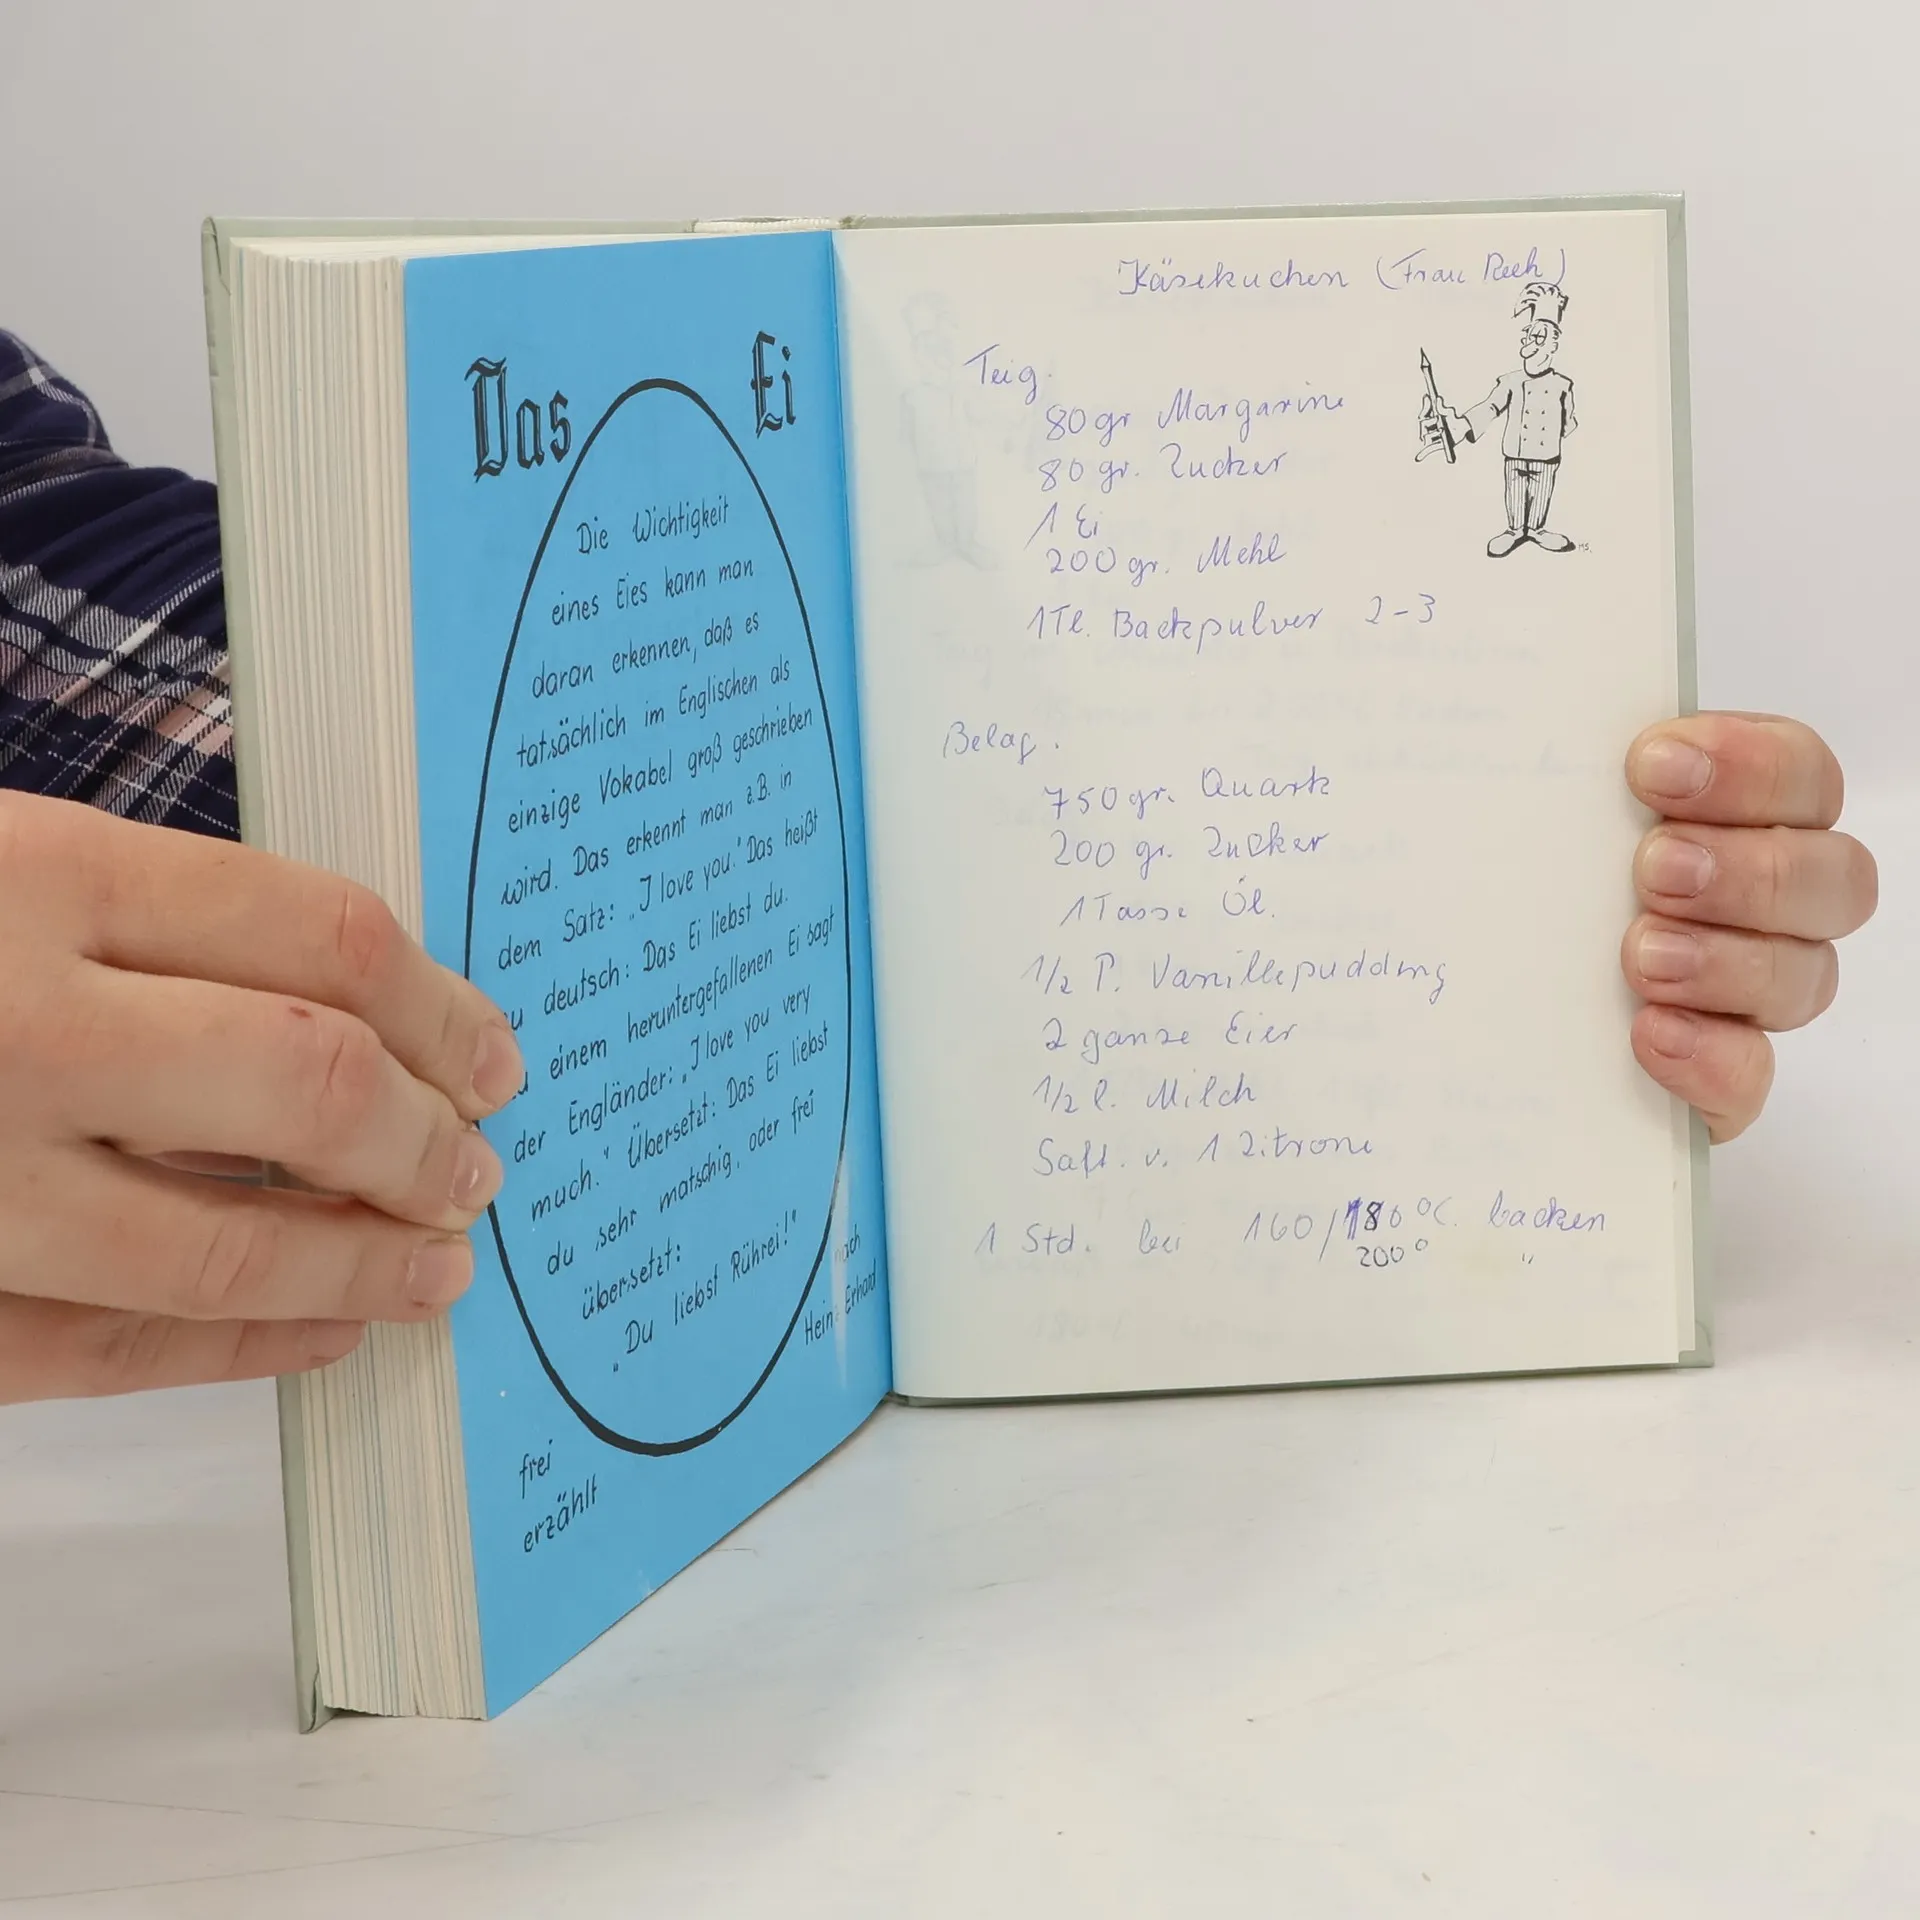 Das Ei
Die Wichtigkeit
eines Eies kann man
daran erkennen, daß es
tatsächlich im Englischen als
einzige Vokabel groß geschrieben
wird. Das erkennt man z.B. in
dem Satz: „I love you." Das heißt
deutsch: Das Ei liebst du.
einem heruntergefallenen Ei sagt
der Engländer: „I love you very
much." Übersetzt: Das Ei liebst
du sehr matschig, oder frei
übersetzt:
„Du liebst Rührei!"
nach
Heinz Erhard
frei
erzählt
Käsekuchen (Frau
Teig.
80 gr Margarine
80 gr. Zucker
1 Ei
200 gr. Mehl
1 Tl. Backpulver 2-3
Belag.
750 gr. Quark
200 gr. Zucker
1 Tasse Öl.
1/2 P. Vanillepudding
2 ganze Eier
1/2 l. Milch
Saft. v. 1 Zitrone
1 Std. bei 160/180°C. backen
200° "
MS.